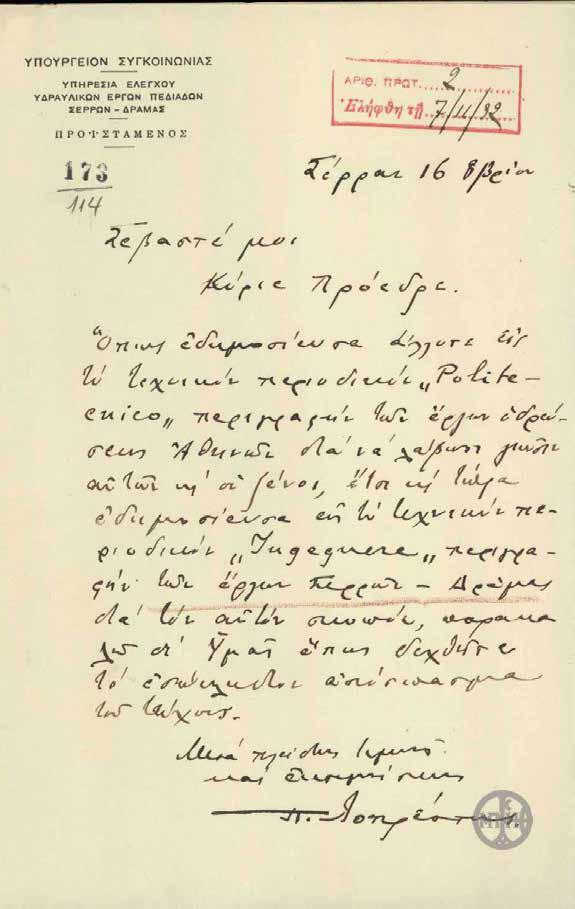 ΥΠΟΥΡΓΕΙΟΝ ΣΥΓΚΟΙΝΩΝΙΑΣ
ΥΠΗΡΕΣΙΑ ΕΛΕΓΧΟΥ
ΥΔΡΑΥΛΙΚΩΝ ΕΡΓΩΝ ΠΕΔΙΑΔΩΝ
ΣΕΡΡΩΝ – ΔΡΑΜΑΣ
ΠΡΟΪΣΤΑΜΕΝΟΣ
173
114
ΑΡΙΘ. ΠΡΩΤ. 2
Ἐλήφθη τῇ 7/11/32
Σέρραι 16 8βρίου
Σεβαστέ μοι
Κύριε Πρόεδρε.
Ὅπως ἐδημοσίευσα ἄλλοτε εἰς
τὸ τεχνικὸν περιοδικὸν „Polite-
cnico„ περιγραφὴν τῶν ἔργων ὑδρεύ-
σεως Ἀθηνῶν διὰ νὰ λάβωσι γνῶσιν
αὐτῶν κ' οἱ ξένοι, ἔτσι κ' τώρα
ἐδημοσίευσα εἰς τὸ τεχνικὸν πε-
ριοδικόν „Ingegnere„ περιγρα-
φὴν τῶν ἔργων Σερρῶν – Δράμας
διὰ τὸν αὐτὸν σκοπόν, παρακα
λῶ δ' Ὑμᾶς ὅπως δεχθῆτε
τὸ ἐσώκλειστον ἀπόσπασμα
τοῦ τεύχους.
Μετὰ πλείστης τιμῆς
καὶ ἐκτιμήσεως
Π.